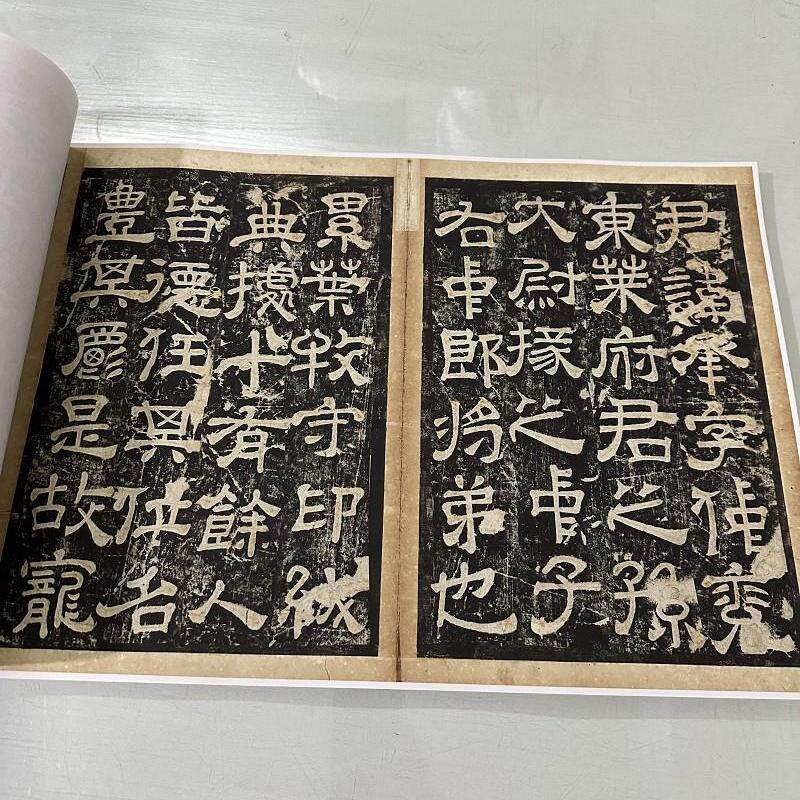 君諱承字仲兗
東萊府君之孫
大尉掾之中子
右中郎將弟也
累葉牧守印紱
典據十有餘人
皆德任其位名
豐其爵是故寵